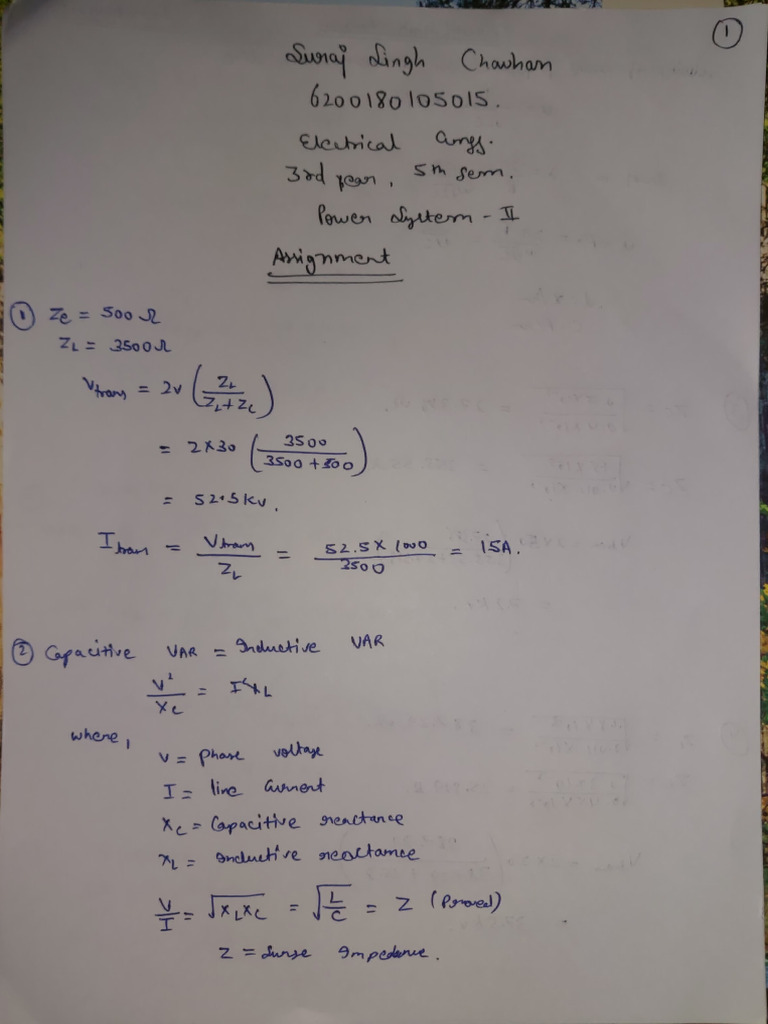 ①
Suraj Singh Chauhan
6200180105015.
Electrical Engg.
3rd year, 5th sem.
Power System - II
Assignment
① Zc = 500 Ω
ZL = 3500 Ω
Vtrans = 2V (ZL / (ZL + Zc))
= 2 × 30 (3500 / (3500 + 500))
= 52.5 kv.
Itrans = Vtrans / ZL = 52.5 × 1000 / 3500 = 15A.
② Capacitive VAR = Inductive VAR
V² / Xc = I² XL
where,
V = phase voltage
I = line current
Xc = Capacitive reactance
XL = inductive reactance
V / I = √(XL Xc) = √(L / C) = Z (Proved)
Z = Surge Impedance.